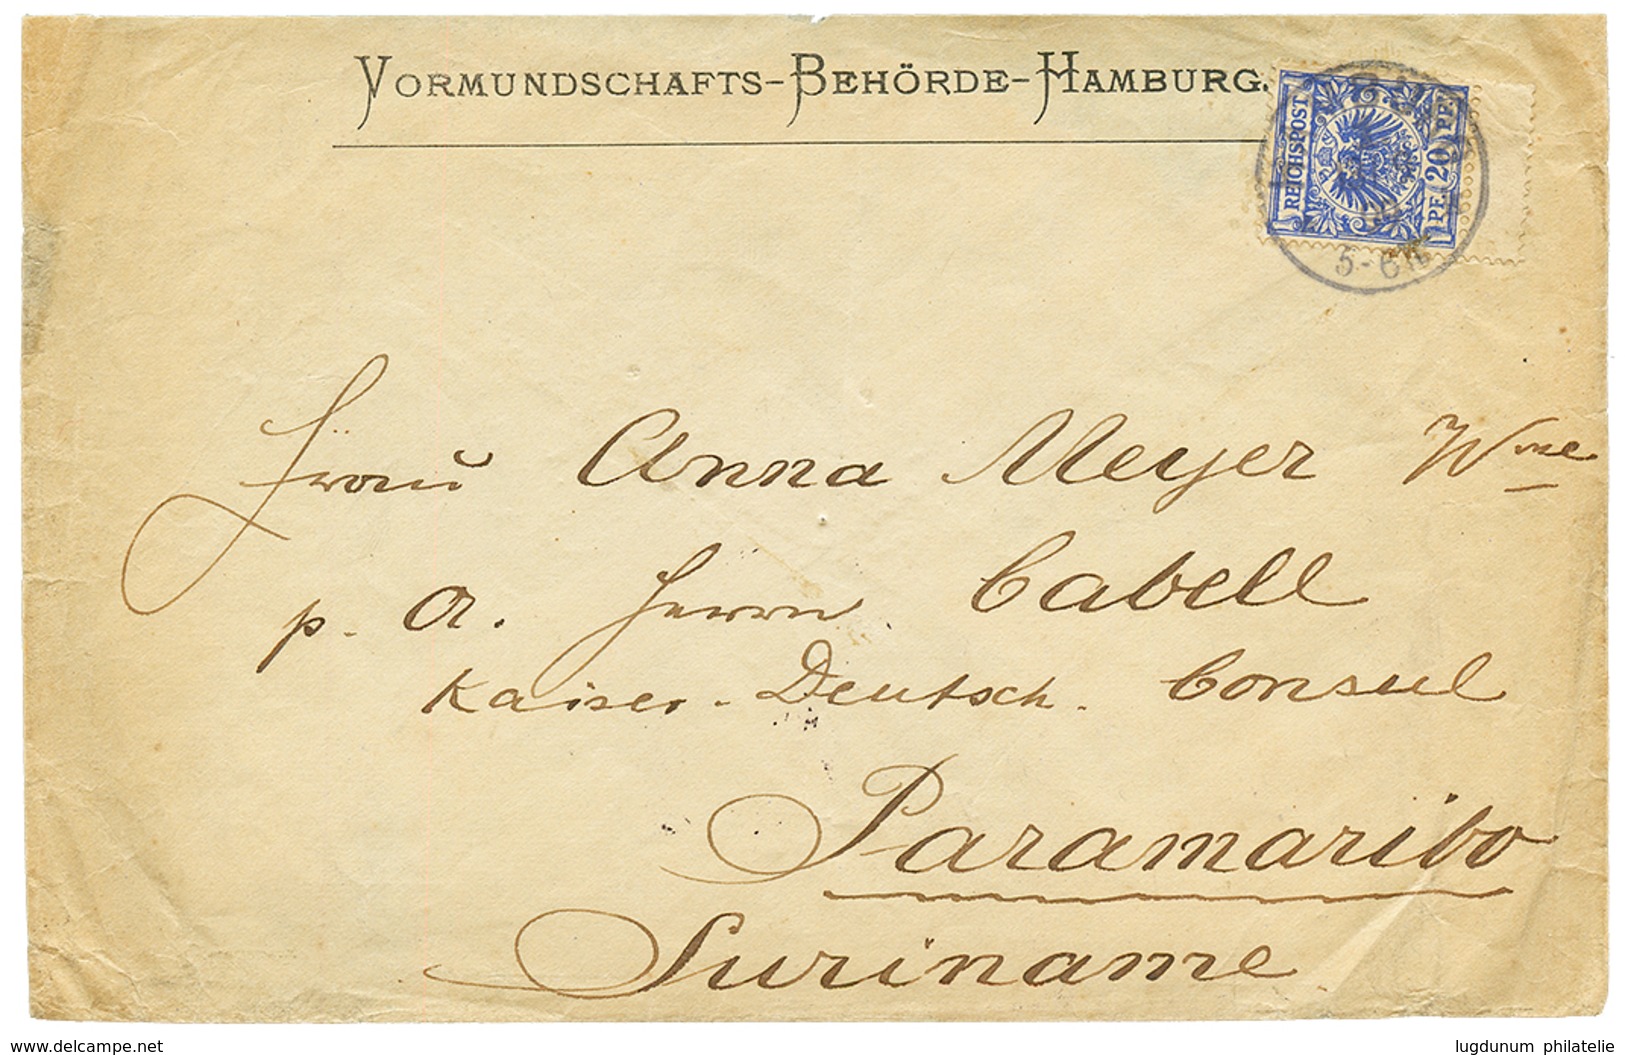 VORMUNDSCHAFTS-BEHÖRDE-HAMBURG.
REICHSPOST
PF. 20 PF.
5-6N
Frau Anna Meyer Wwe
p. A. Herrn Cabell
Kaiser. Deutsch. Consul
Paramaribo
Suriname
delcampe.net
lugdunum philatelie